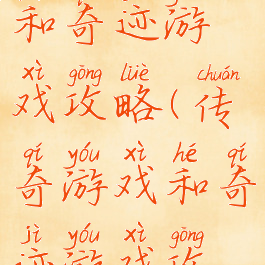 和奇迹游
xì gōng lüè chuán
戏攻略(传
qí yóu xì hé qí
奇游戏和奇
jì yóu xì gōng
迹游戏攻